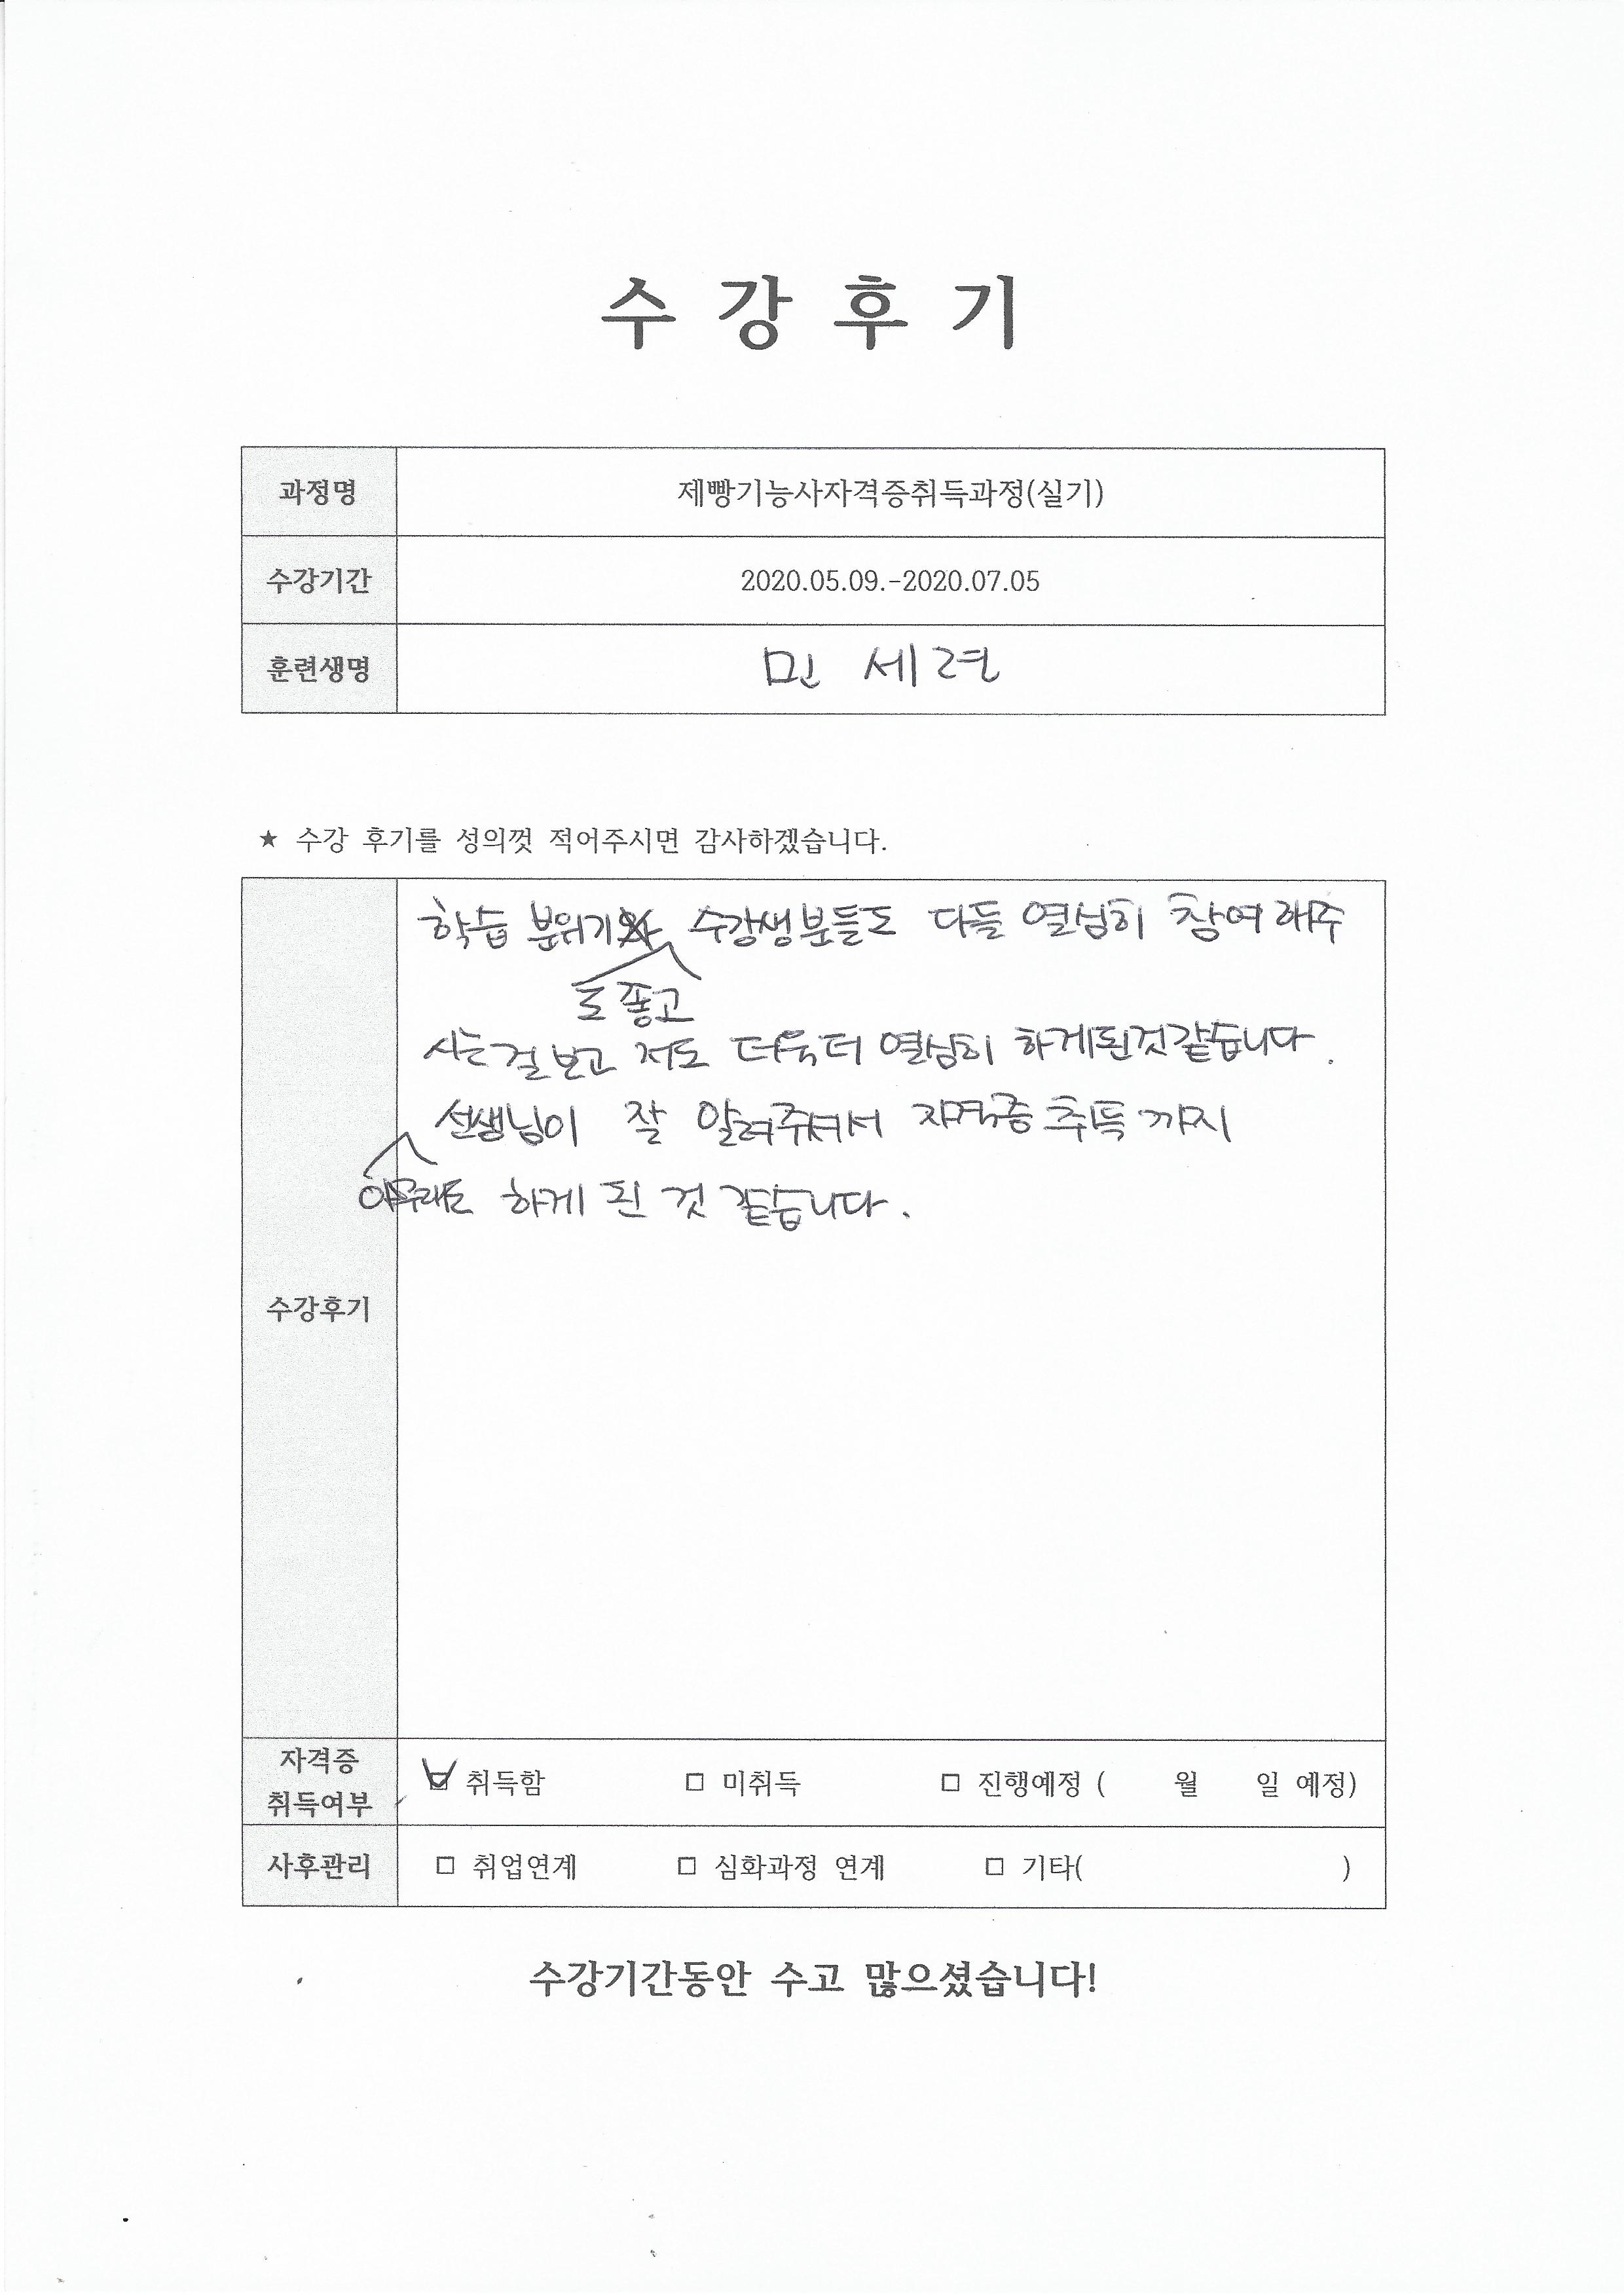 수 강 후 기
과정명 제빵기능사자격증취득과정(실기)
수강기간 2020.05.09.-2020.07.05
훈련생명 민 세 련
★ 수강 후기를 성의껏 적어주시면 감사하겠습니다.
학습 분위기 수강생분들도 다들 열심히 참여해주
도 좋고
시는걸 보고 저도 더욱더 열심히 하게된것같습니다.
선생님이 잘 알려주셔서 자격증 취득 까지
아무래도 하게 된 것 같습니다.
수강후기
자격증
취득여부 ☑ 취득함 □ 미취득 □ 진행예정 ( 월 일 예정)
사후관리 □ 취업연계 □ 심화과정 연계 □ 기타( )
수강기간동안 수고 많으셨습니다!